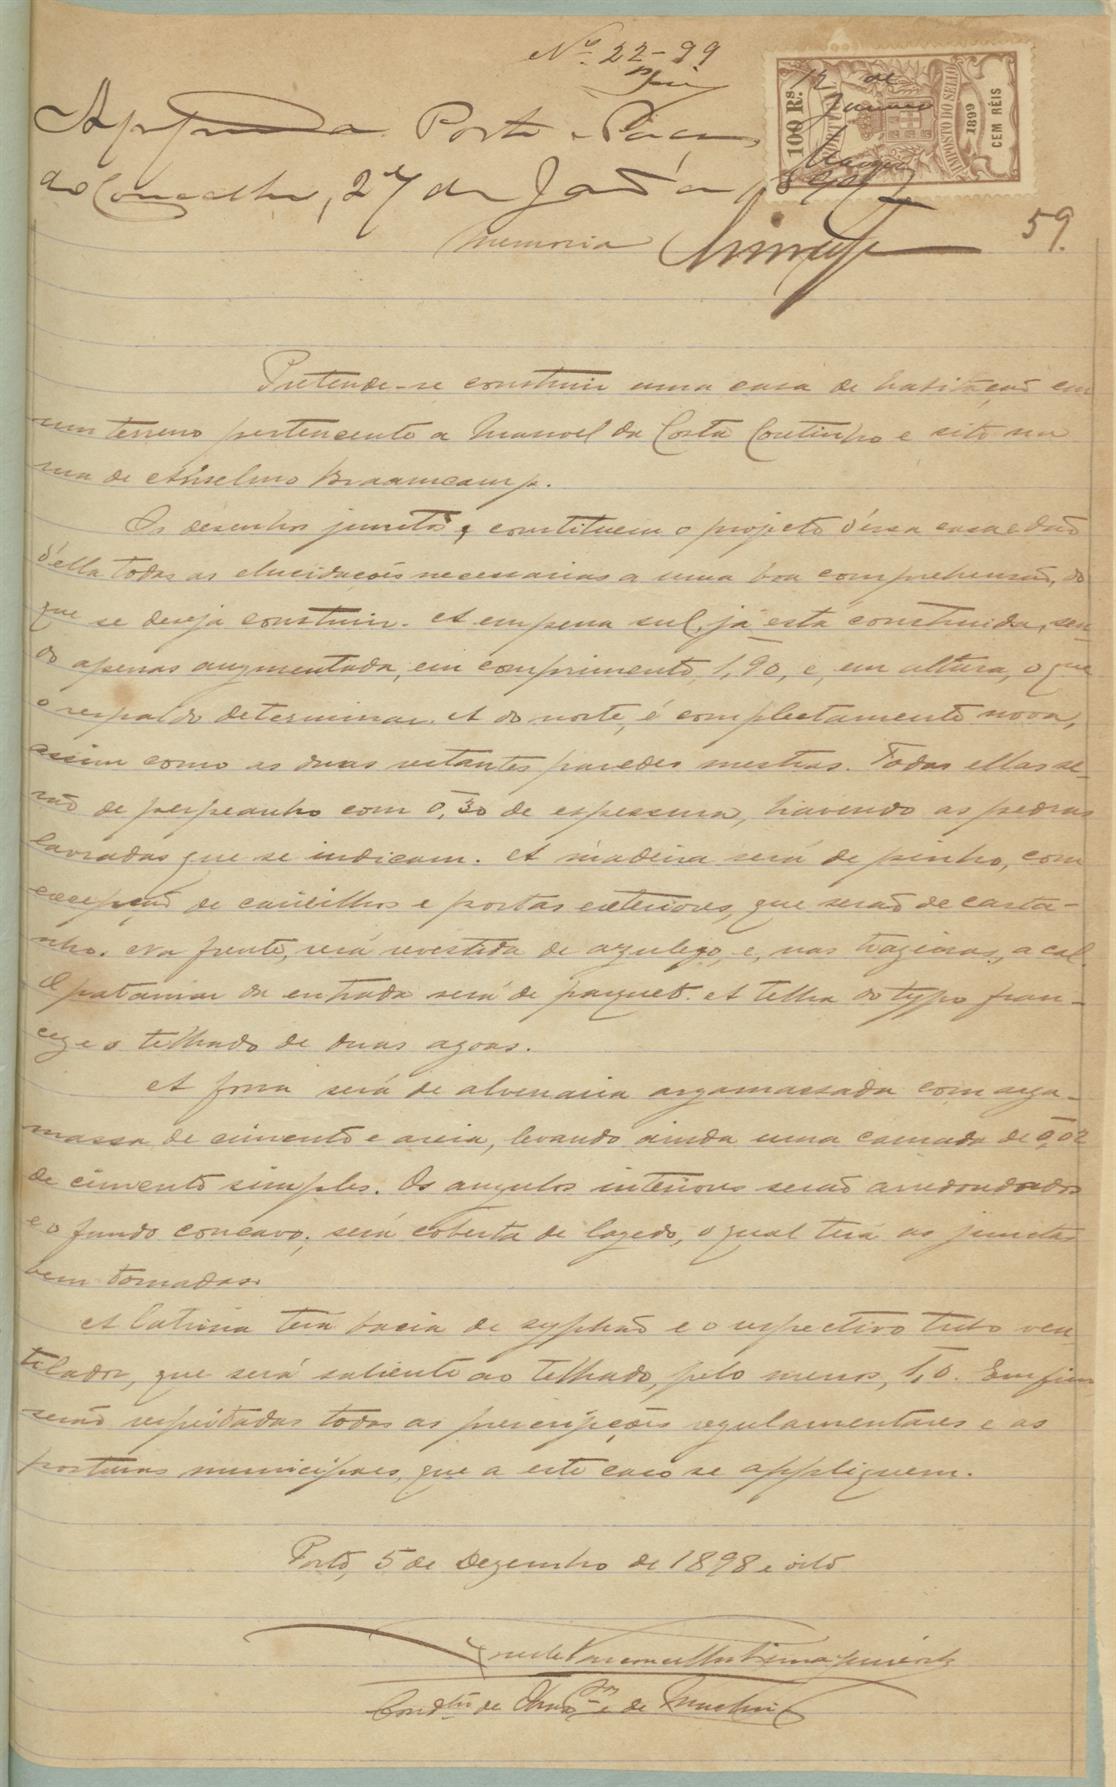 Nº 22-99
Approvada. Porto e Paços
do Concelho, 27 de de 1899
100 Rs.
PORTUGAL
IMPOSTO DO SELLO
1899
CEM RÉIS
12 de
Janeiro
59.
Memoria
Pretende-se construir uma casa de habitação em
um terreno pertencente a Manoel da Costa Coutinho e sito na
rua de Anselmo Braamcamp.
Os desenhos juntos, constituem o projeto d'essa casa e dão
d'ella todas as elucidações necessarias a uma boa comprehensão, do
que se deseja construir. A empena sul, já está construida, sen-
do apenas augmentada, em comprimento, 1,90, e, em altura, o que
o respaldo determinar. A do norte, é completamente nova,
assim como as duas restantes paredes mestras. Todas ellas se-
rão de perpeanho com 0,30 de espessura, havendo as pedras
lavradas que se indicam. A madeira será de pinho, com
excepção de caixilhos e portas exteriores, que serão de casta-
nho. Na frente, será revestida de azulejo, e, nas trazeiras, a cal.
O patamar da entrada será de parquet. A telha do typo fran-
cez e o telhado de duas agoas.
A fossa será de alvenaria argamassada com arga-
massa de cimento e areia, levando ainda uma camada de 0,02
de cimento simples. Os angulos interiores serão arredondados
e o fundo concavo; será coberta de lagedo, o qual terá as junctas
bem tomadas.
A latrina terá bacia de syphão e o respectivo tubo ven-
tilador, que será saliente ao telhado, pelo menos, 1,0. Emfim
serão respeitadas todas as prescripções regulamentares e as
posturas municipaes, que a este caso se appliquem.
Porto, 5 de Dezembro de 1898 e oito
José de Vasconcellos Lima Junior
Condtor de Obras e de